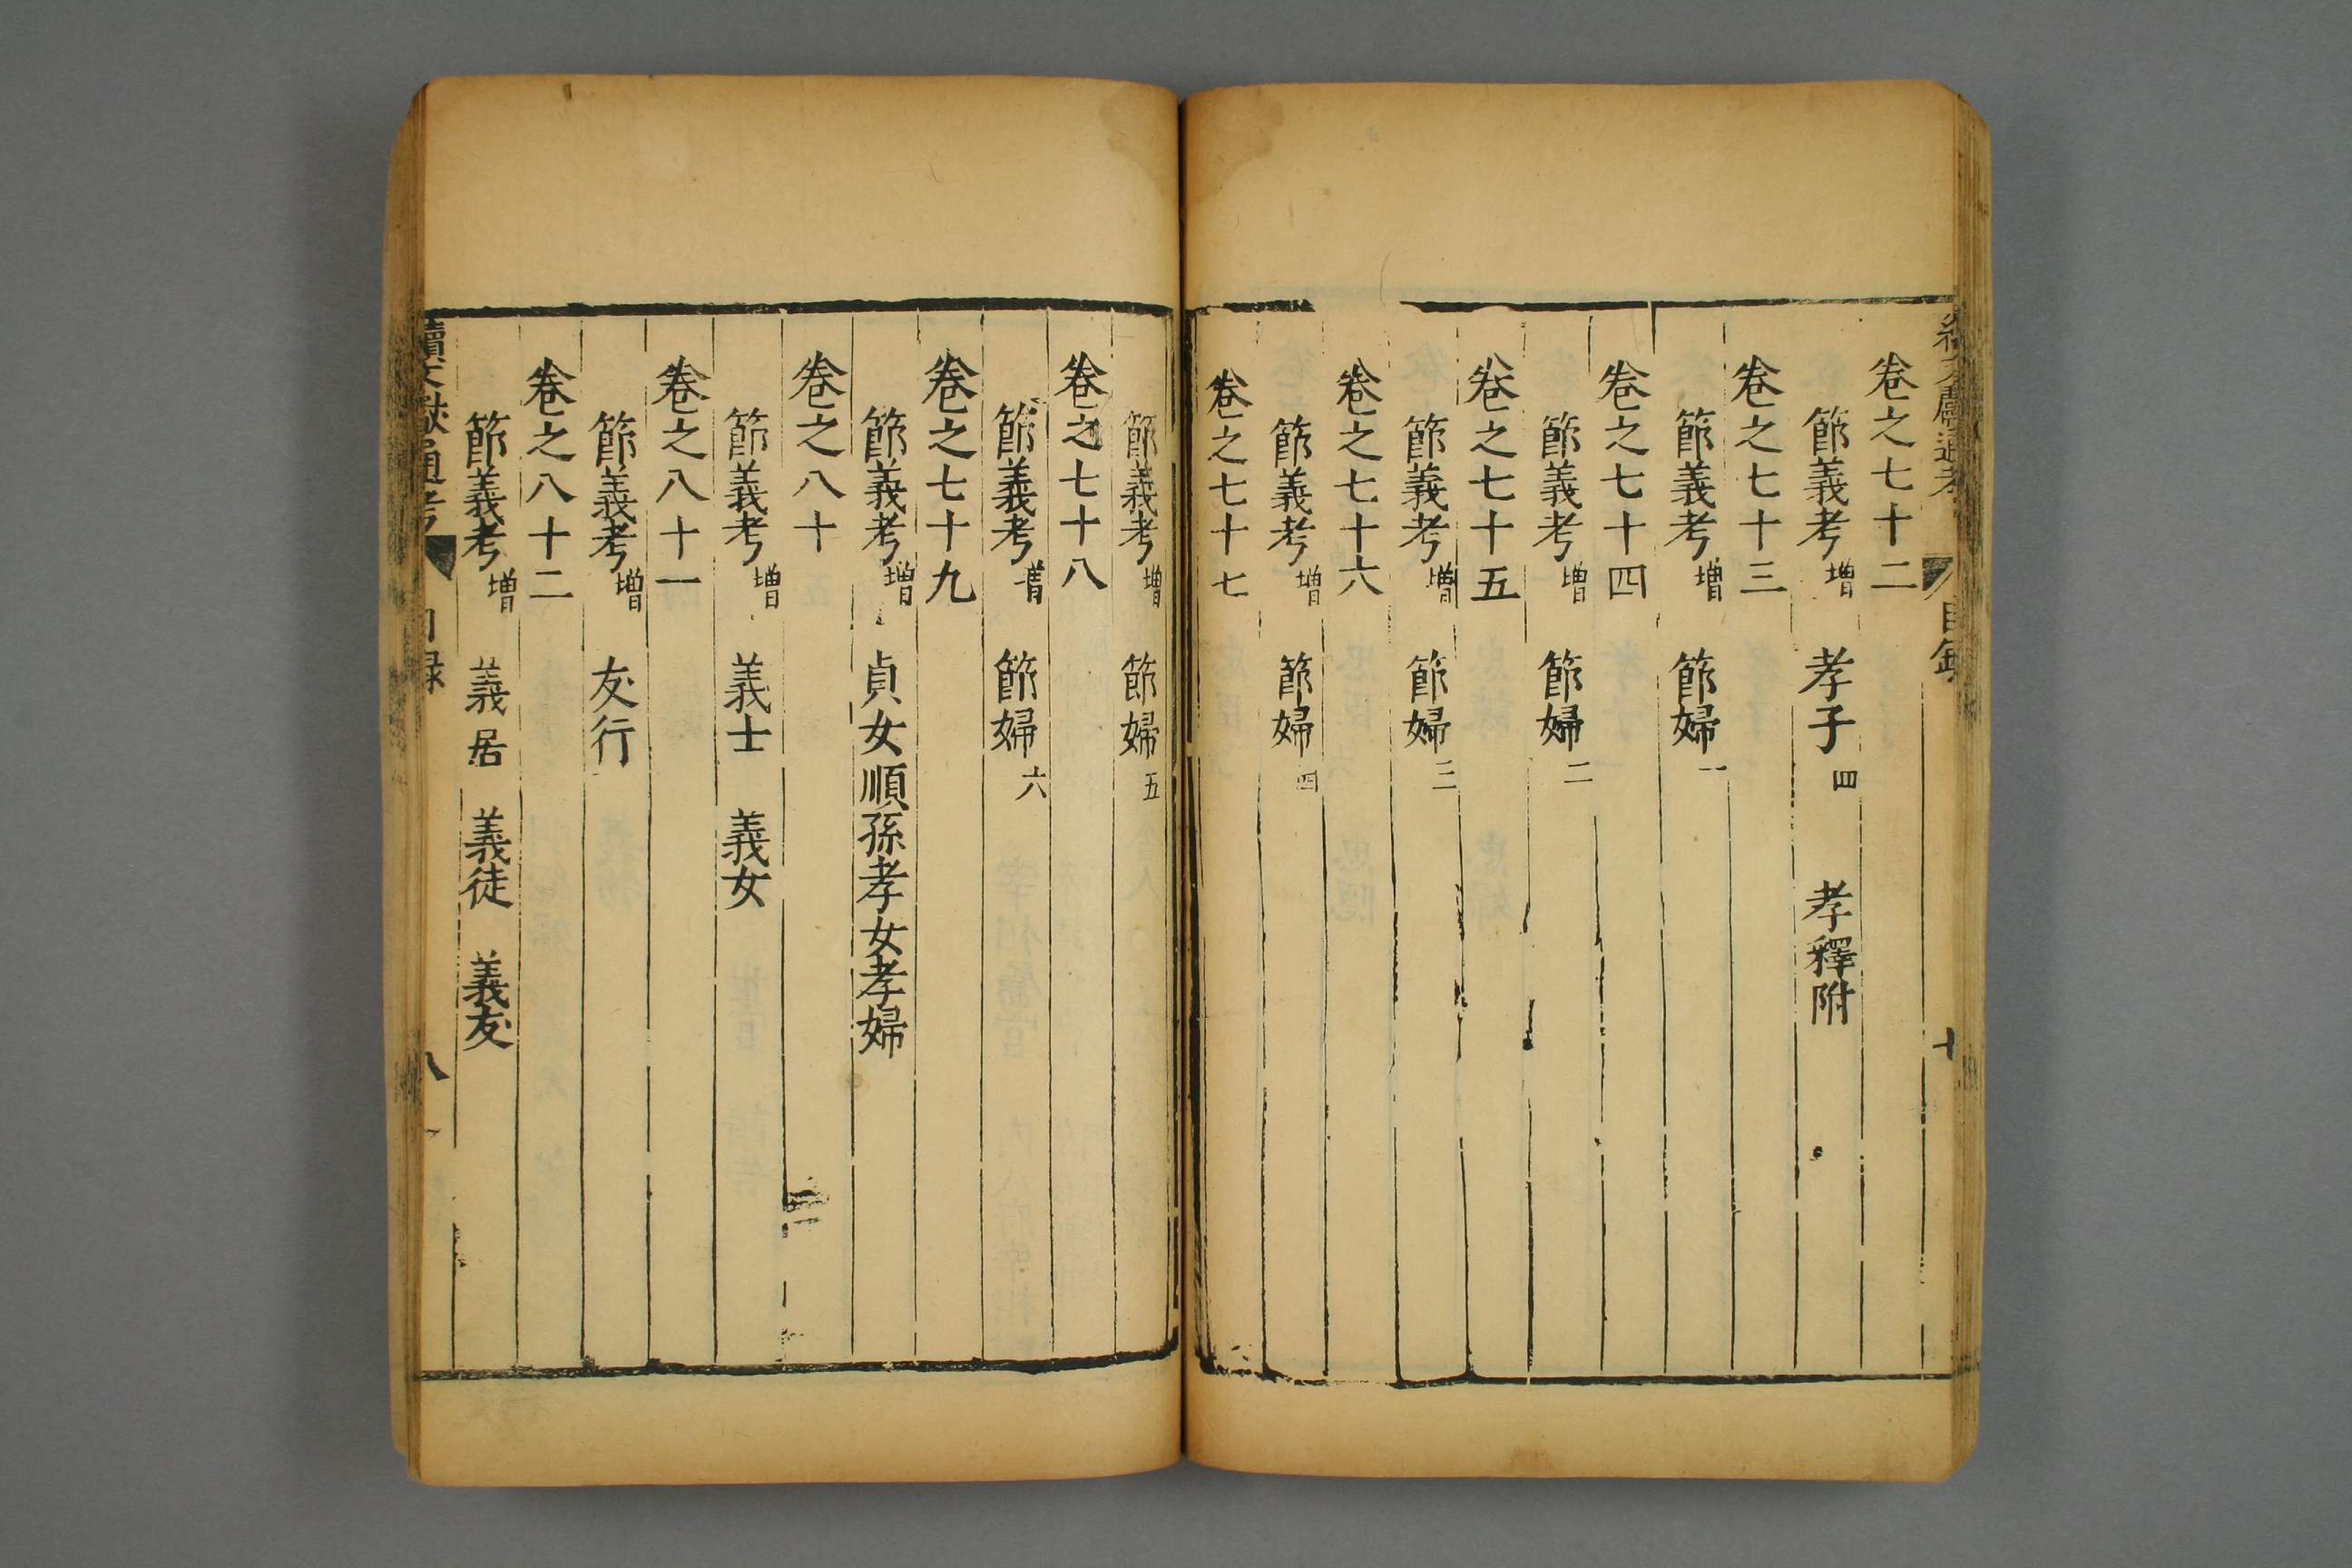 卷之七十二
節義考增 孝子四 孝釋附
卷之七十三
節義考增 節婦一
卷之七十四
節義考增 節婦二
卷之七十五
節義考增 節婦三
卷之七十六
節義考增 節婦四
卷之七十七
節義考增 節婦五
卷之七十八
節義考增 節婦六
卷之七十九
節義考增 貞女順孫孝女孝婦
卷之八十
節義考增 義士 義女
卷之八十一
節義考增 友行
卷之八十二
節義考增 義居 義徒 義友
續文獻通考 目録 八